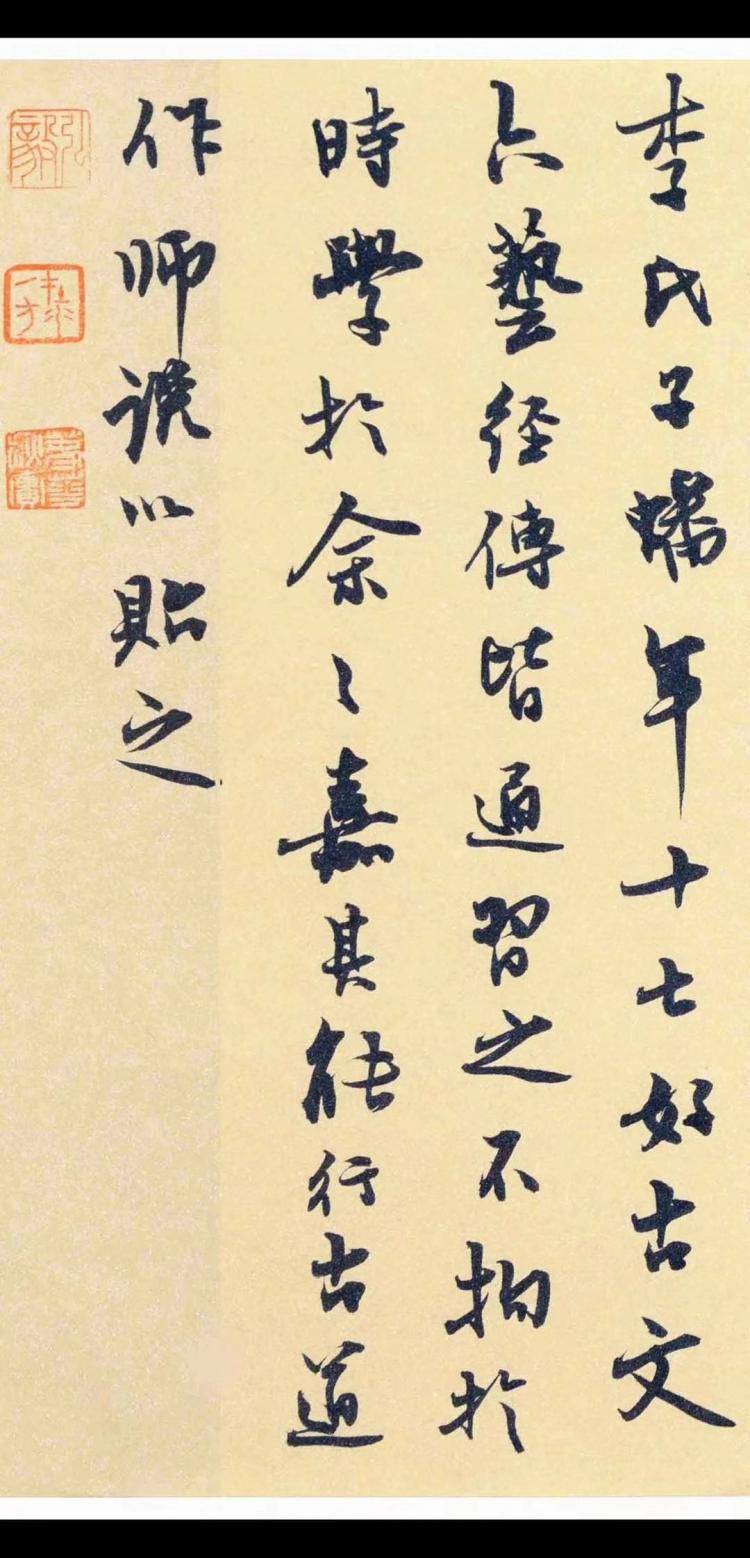 李氏子蟠年十七好古文
六藝經傳皆通習之不拘於
時學於余々嘉其能行古道
作師説以貽之